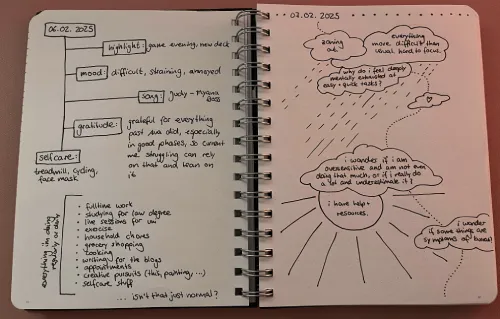 06.02.2025
highlight: game evening, new deck
mood: difficult, straining, annoyed
song: Judy - Myana
gratitude: grateful for everything
past me did, especially
in good phases, so current
me struggling can rely
on that and lean on
it
selfcare:
treadmill, cycling,
face mask
everything i'm doing
regularly or daily
• fulltime work
• studying for law degree
• live sessions for uni
• exercise
• household chores
• grocery shopping
• cooking
• writing for the blogs
• appointments
• creative pursuits (this, painting, ...)
• selfcare stuff
... isn't that just normal?
07.02.2025
zoning
out.
everything
more difficult than
usual. hard to focus.
why do i feel deeply
mentally exhausted at
easy + quick tasks?
i wonder if i am
oversensitive and am not even
doing that much, or if i really do
a lot and underestimate it?
i have help +
resources.
i wonder
if some things are
symptoms of